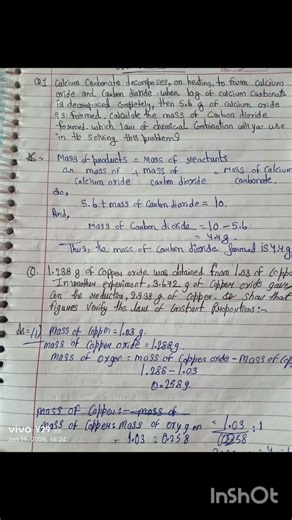 Q.1 Calcium Carbonate decomposes, on heating, to form calcium
oxide and Carbon dioxide. when 10g of calcium Carbonate
is decomposed completely, then 5.6 g of calcium oxide
is formed. Calculate the mass of Carbon dioxide
formed. which law of chemical Combination will you use
in solving this problem?
Mass of products = Mass of reactants
or mass of + mass of = mass of Calcium
Calcium oxide Carbon dioxide Carbonate.
So,
5.6 + mass of Carbon dioxide = 10.
And,
Mass of Carbon dioxide = 10 - 5.6
= 4.4 g.
Thus, the mass of Carbon dioxide formed is 4.4 g
Q. 1.288 g of Copper oxide was obtained from 1.03 of
In another experiment, 3.672 g of Copper oxide gave
on the reduction, 2.938 g of Copper. show that
figures Verify the law of Constant Proportions:-
(i) mass of Copper = 1.03 g.
mass of Copper oxide = 1.288g
mass of = mass of Copper oxide - Mass of
1.288 - 1.03
0.258g.
mass of Copper :- mass of
mass of Copper : Mass of oxygen = 1.03 : 1
= 1.03 : 0.258 0.258
vivo Y29
Jan 19, 2026, 16:24
InShOt